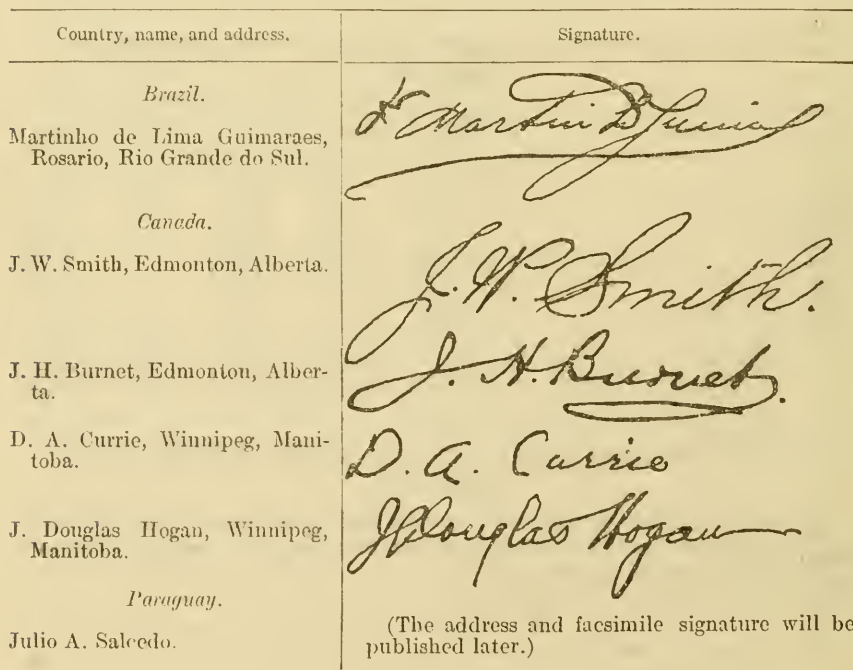 Country, name, and address.
Signature.
Brazil.
Martinho de Lima Guimaraes,
Rosario, Rio Grande do Sul.
Martini
Canada.
J. W. Smith, Edmonton, Alberta.
J. W. Smith.
J. H. Burnet, Edmonton, Alber-
ta.
J. H. Burnet.
D. A. Currie, Winnipeg, Mani-
toba.
D. A. Currie
J. Douglas Hogan, Winnipeg,
Manitoba.
J Douglas Hogan
Paraguay.
Julio A. Salcedo.
(The address and facsimile signature will be
published later.)